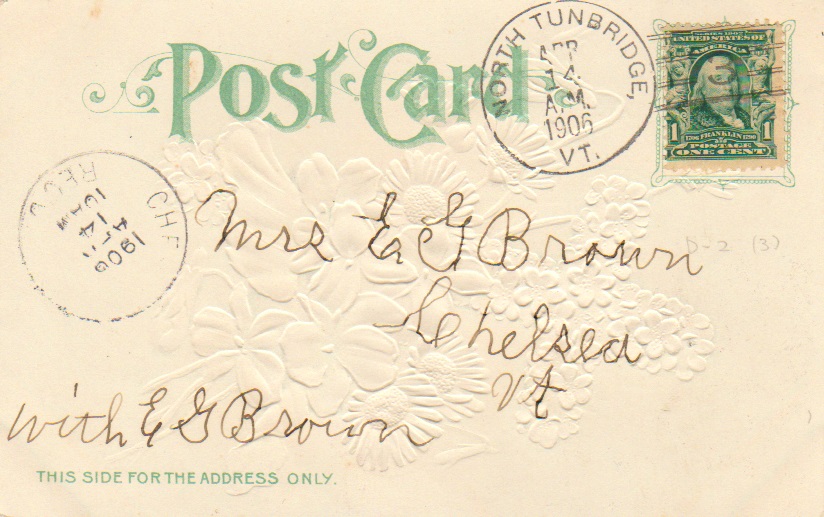 Post Card
NORTH TUNBRIDGE,
APR
14
A.M.
1906
VT.
SERIES 1902
UNITED STATES OF
AMERICA
1 FRANKLIN 1
POSTAGE
ONE CENT
REC'D
10 AM
14
1906
Mrs E G Brown
D-2 (3)
Chelsea
Vt
with E G Brown
THIS SIDE FOR THE ADDRESS ONLY.